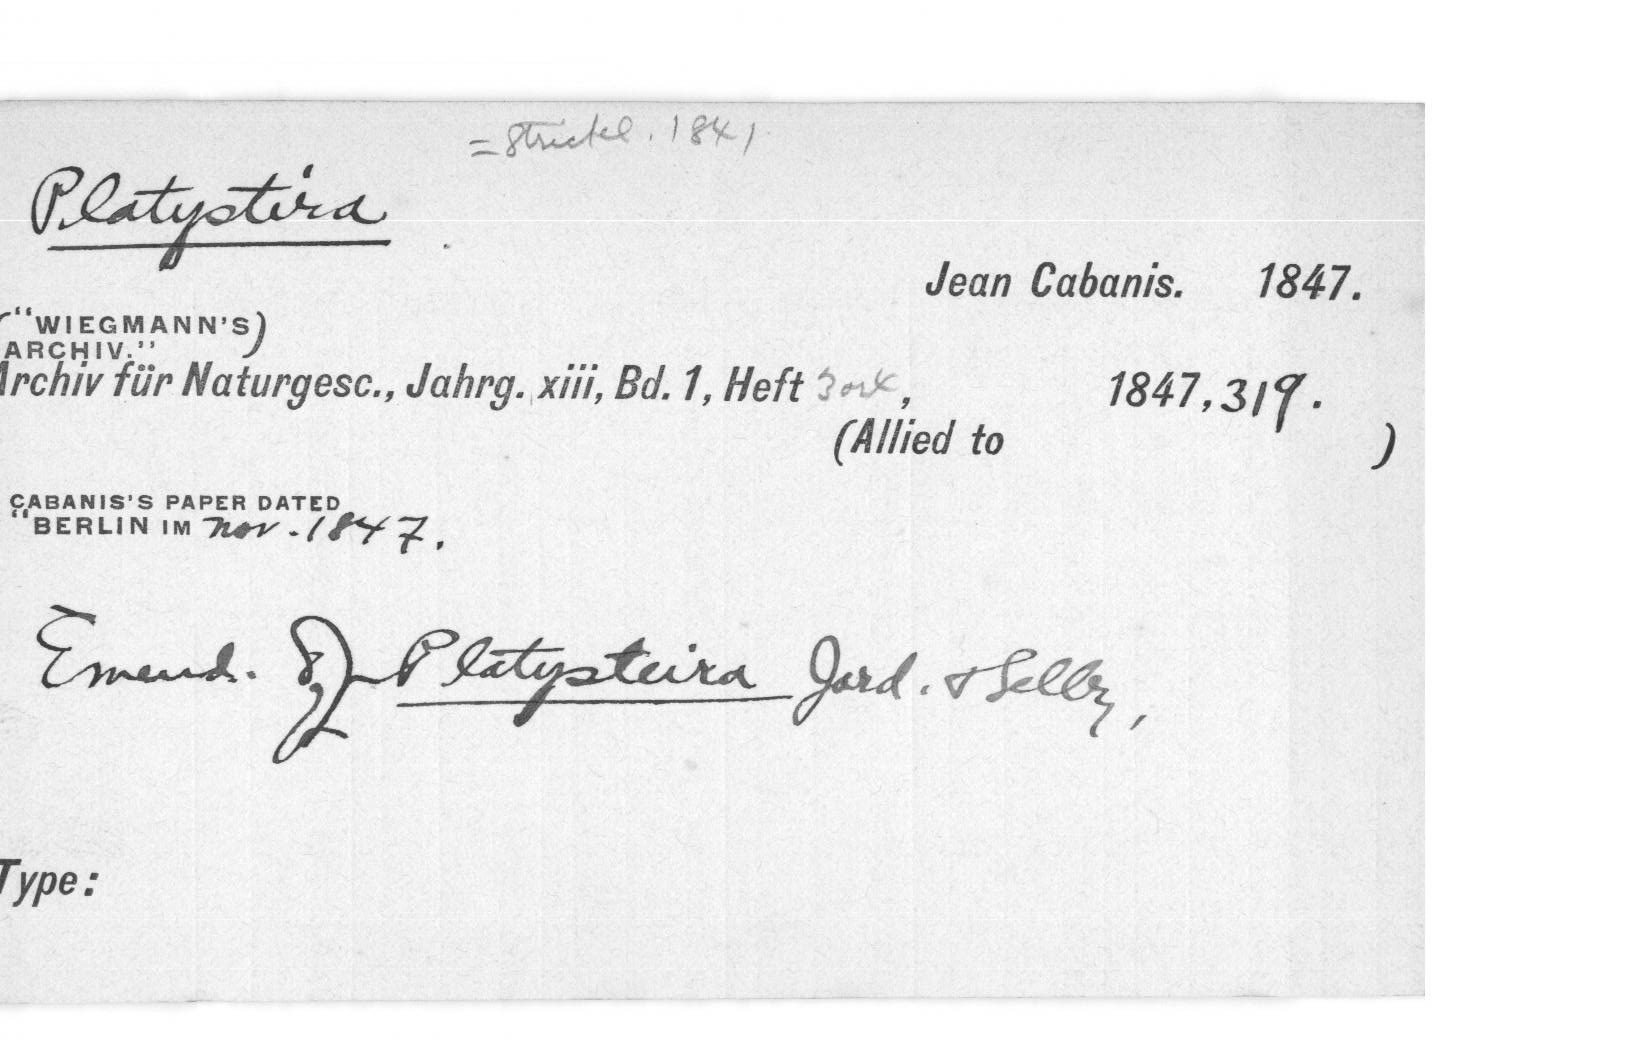 = Strickl. 1841
Platystira
Jean Cabanis. 1847.
("WIEGMANN'S)
ARCHIV."
Archiv für Naturgesc., Jahrg. xiii, Bd. 1, Heft 3 or 4, 1847, 319.
(Allied to )
CABANIS'S PAPER DATED
"BERLIN IM Nov. 1847.
Emend. of Platysteira Jard. & Selby,
Type: